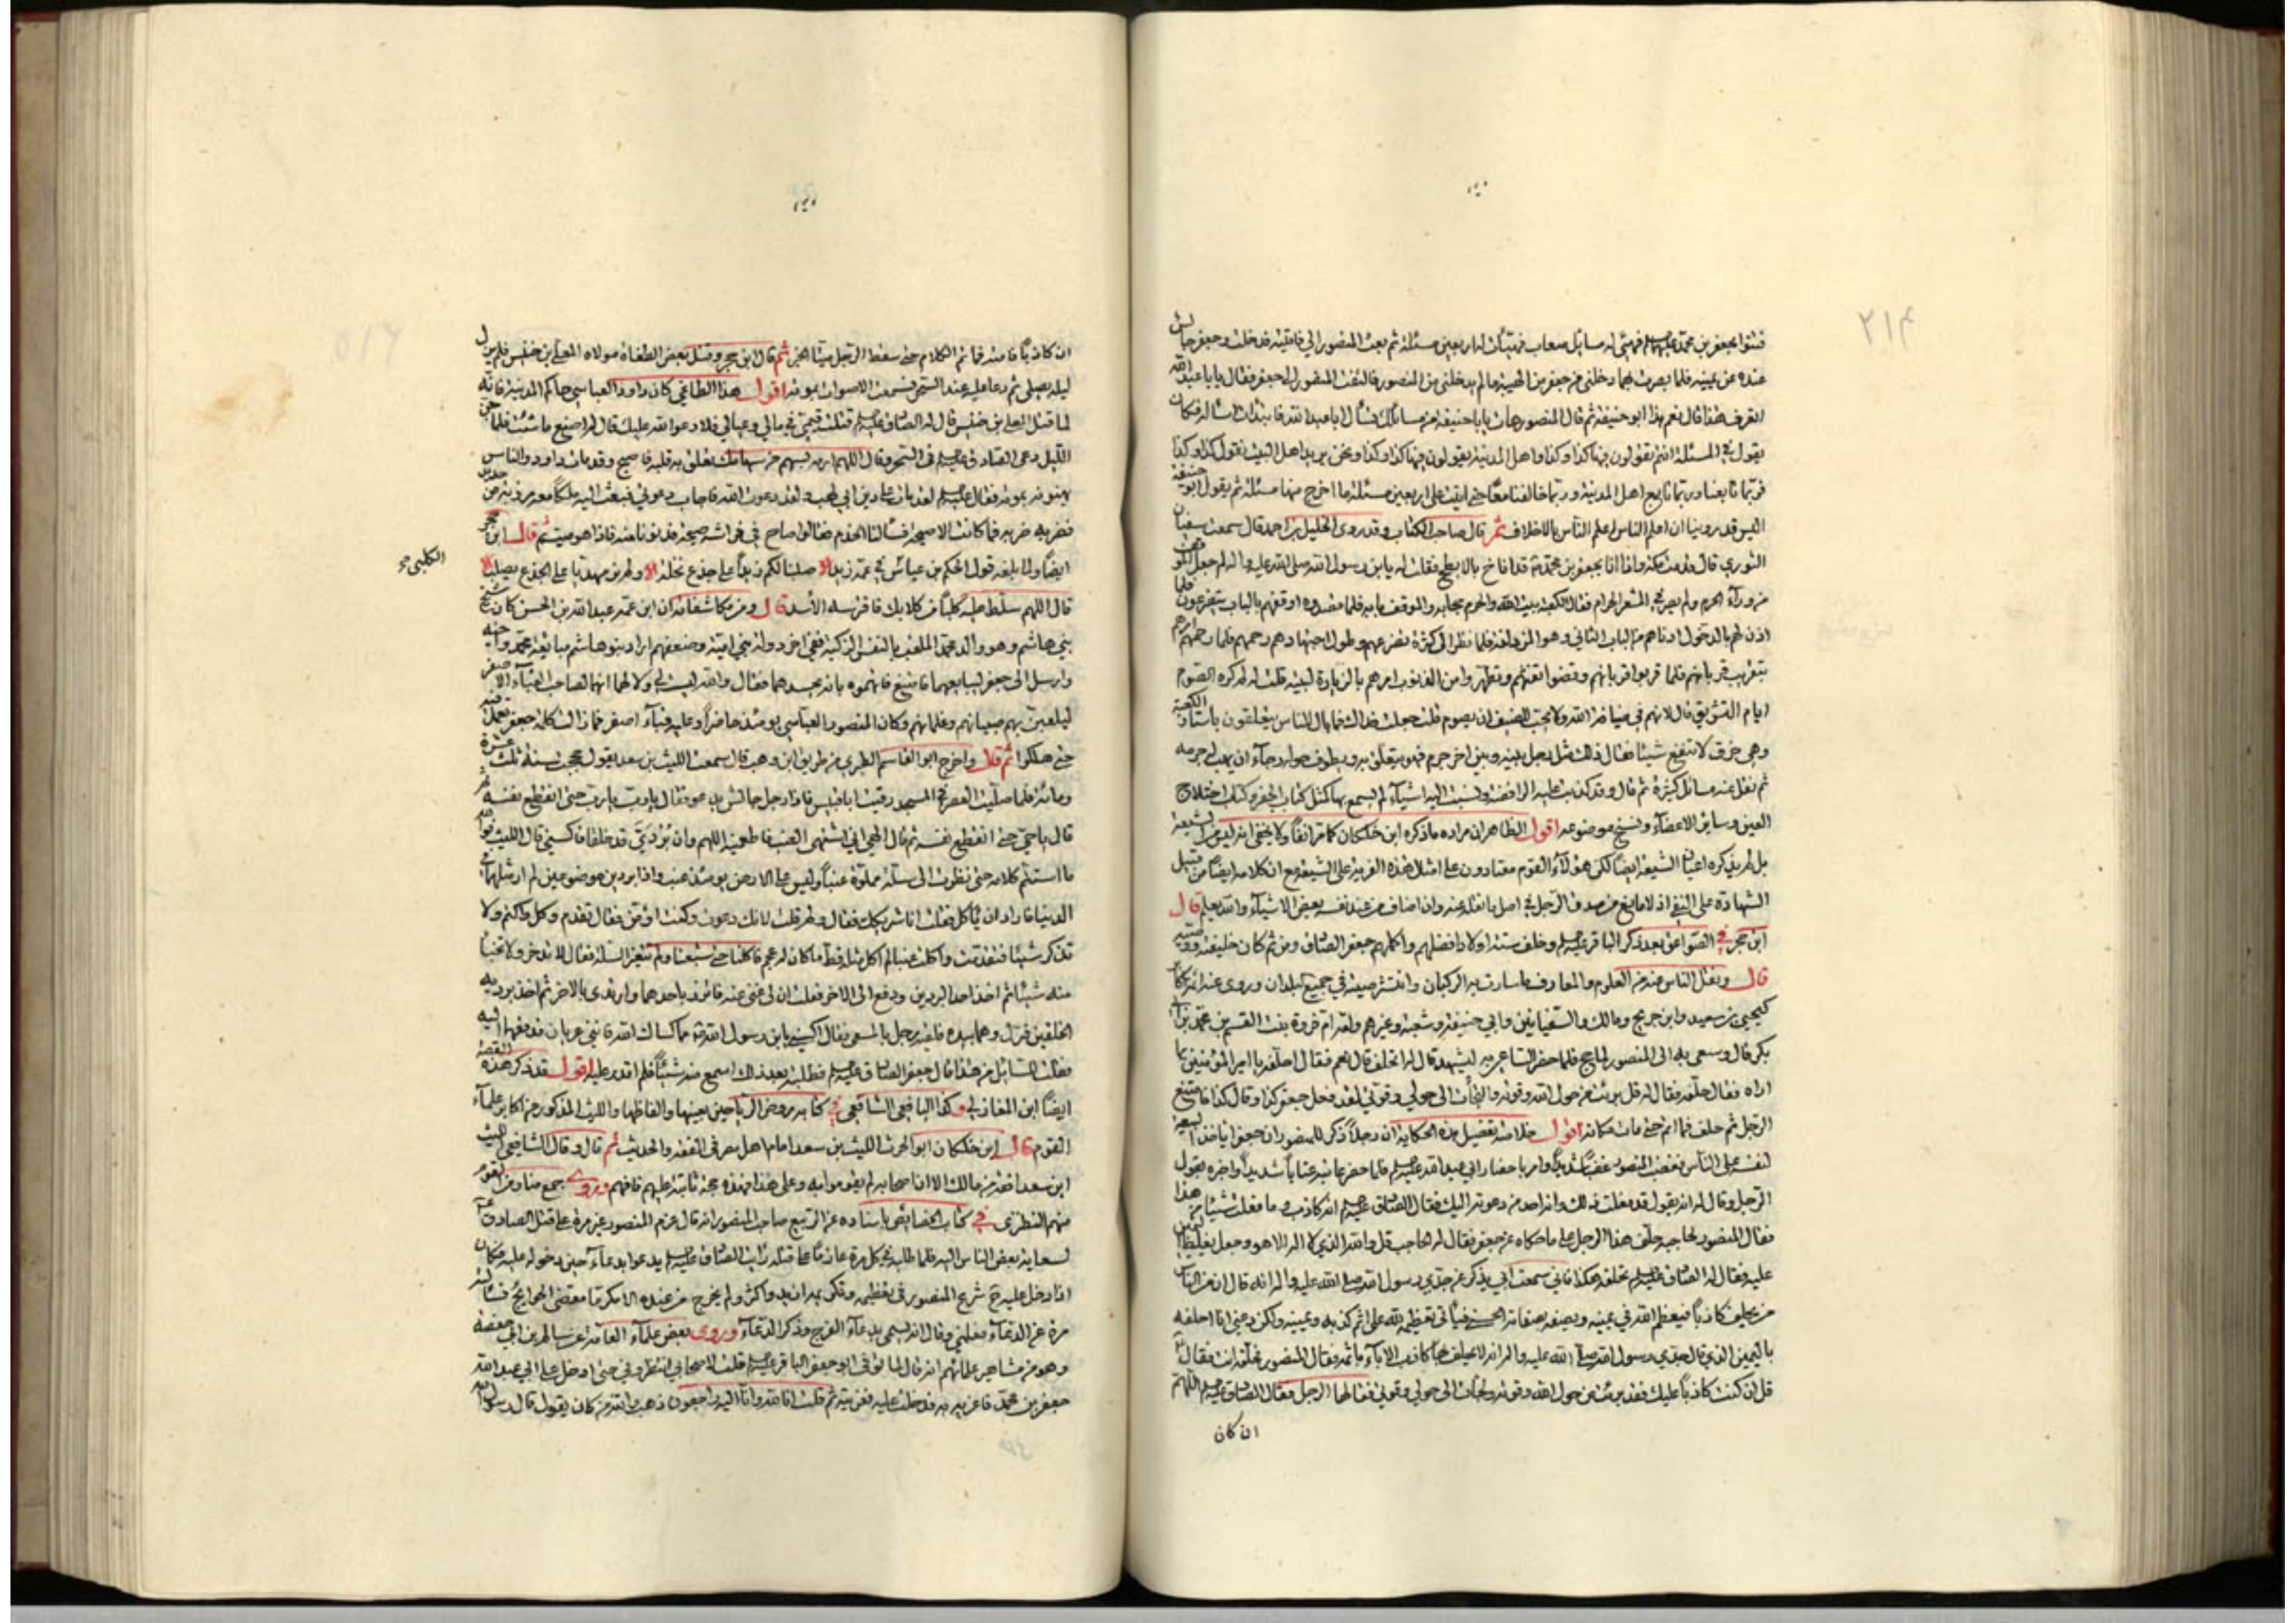 فتنوا بجعفر بن محمد عليهما السلام فهيئ له مسائل صعاب فهيأت له اربعين مسئلة ثم بعث المنصور الي فاتيته فدخلت وجعفر جالس
عنده عن يمينه فلما بصرت بهما دخلني من جعفر من الهيبة ما لم يدخلني من المنصور فالتفت المنصور الى جعفر فقال يا ابا عبد الله
اتعرف هذا قال نعم هذا ابو حنيفة ثم قال المنصور هات يا ابا حنيفة من مسائلك نسأل ابا عبد الله فابتدأت اسأله فكان
يقول في المسئلة انتم تقولون فيها كذا وكذا واهل المدينة يقولون فيها كذا وكذا ونحن نريد اهل البيت نقول كذا وكذا
فربما تابعنا وربما تابع اهل المدينة وربما خالفنا معا حتى اتيت على اربعين مسئلة ما اخرج منها مسئلة ثم يقول ابو حنيفة
اليس قد روينا ان اعلم الناس اعلم الناس بالاختلاف ثم قال صاحب الكتاب وقد روى الخليل بن احمد قال سمعت سفيان
الثوري قال قدمت مكة واذا انا بجعفر بن محمد قد اناخ بالابطح فقلت له يابن رسول الله صلى الله عليه واله لم جعل الموقف
من وراء الحرم ولم يصر في المشعر الحرام فقال الكعبة بيت الله والحرم حجابه والموقف بابه فلما قصدوه اوقفهم بالباب يتضرعون فلما
اذن لهم بالدخول ادناهم من الباب الثاني وهو المزدلفة فلما نظر الى كثرة تضرعهم وطول اجتهادهم رحمهم فلما رحمهم امرهم
بتقريب قربانهم فلما قربوا قربانهم وقضوا تفثهم وتطهروا من الذنوب امرهم بالزيارة لبيته قلت له لم كره الصوم
ايام التشريق قال لانهم في ضيافة الله ولا يحب الضيف ان يصوم قلت جعلت فداك فما بال الناس يتعلقون باستار الكعبة
وهي خرق لا تنفع شيئا فقال ذلك مثل رجل بينه وبين اخر جرم فهو يتعلق به ويطوف حوله رجاء ان يهب له جرمه
ثم نقل عنه مسائل كثيرة ثم قال وقد كذبت عليه الرافضة ونسبت اليه اشياء لم يسمع بها كمثل كتاب الجفر وكتاب اختلاج
العين وسائر الاعضاء ونسخ موضوعة اقول الظاهر ان مراده ما ذكره ابن خلكان كما مر انفا ولا يخفى انه ليس من الشيعة
بل لم يذكره اعيان الشيعة ايضا لكن هؤلاء القوم معتادون على امثال هذه الفرية على الشيعة مع ان كلامه ايضا من قبيل
الشهادة على النفي اذ لا مانع من صدق الرجل في اصل ما نقله عنه وان اضاف من عند نفسه بعض الاشياء والله يعلم قال
ابن حجر في الصواعق بعد ذكر الباقر عليه السلام وخلف ستة اولاد افضلهم واكملهم جعفر الصادق ومن ثم كان خليفته ووصيه
قال ونقل الناس عنه من العلوم والمعارف ما سارت به الركبان وانتشر صيته في جميع البلدان وروى عنه ائمة كبار
كيحيى بن سعيد وابن جريج ومالك والسفيانين وابي حنيفة وشعبة وغيرهم وامه ام فروة بنت القسم بن محمد بن ابي
بكر قال وسعي به الى المنصور لما حج فلما حضر الساعي به ليشهد قال له اتحلف قال نعم فقال احلفه يا امير المؤمنين بما
اراه فقال حلفه فقال له قل برئت من حول الله وقوته والتجأت الى حولي وقوتي لقد فعل جعفر كذا وقال كذا فامتنع
الرجل ثم حلف فما تم حتى مات مكانه اقول خلاصة تفصيل هذه الحكاية ان رجلا ذكر للمنصور ان جعفرا ياخذ البيعة
لنفسه على الناس فغضب المنصور غضبا شديدا وامر باحضار ابي عبد الله عليه السلام فلما حضر عاتبه عتابا شديدا واخبره بقول
الرجل وقال له انه يقول قد فعلت ذلك وانه احد من دعوته اليك فقال الصادق عليه السلام انه كاذب وما فعلت شيئا من هذا
فقال المنصور لحاجبه حلف هذا الرجل على ما حكاه عن جعفر فقال له الحاجب قل والله الذي لا اله الا هو وجعل يغلظ اليمين
عليه فقال له الصادق عليه السلام لا تحلفه هكذا فاني سمعت ابي يذكر عن جدي رسول الله صلى الله عليه واله انه قال ان من الناس
من يحلف كاذبا فيعظم الله في يمينه ويصفه بصفاته الحسنى فياتي تعظيمه لله على اثم كذبه ويمينه ولكن دعني انا احلفه
باليمين الذي قال جدي رسول الله صلى الله عليه واله انه لا يحلف بها كاذب الا باء باثمه فقال المنصور فحلفه انت فقال
قل ان كنت كاذبا عليك فقد برئت من حول الله وقوته ولجأت الى حولي وقوتي فقالها الرجل فقال الصادق عليه السلام اللهم
ان كان
ان كان كاذبا فامته فما تم الكلام حتى سقط الرجل ميتا الخبر ثم قال ابن حجر وقتل بعض الطغاة مولاه المعلى بن خنيس فلم يزل
ليله يصلي ثم دعا عليه عند السحر فسمعت الاصوات بموته اقول هذا الطاغي كان داود العباسي حاكم المدينة فانه
لما قتل المعلى بن خنيس قال له الصادق عليه السلام قتلت قيمي في مالي وعيالي فلادعو الله عليك قال له اصنع ما شئت فلما جن
الليل دعى الصادق عليه السلام في السحر وقال اللهم ارمه بسهم من سهامك تفلق به قلبه فاصبح وقد مات داود والناس
يهنونه بموته فقال عليه السلام لقد مات على دين ابي لهب ولقد دعوت الله فاجاب دعوتي فبعث اليه ملكا معه مرزبة من حديد
فضربه ضربة فما كانت الا صيحة فسألنا الخدم فقالوا صاح في فراشه صيحة فدنونا منه فاذا هو ميت ثم قال ابن حجر
ايضا ولما بلغه قول الحكم بن عياش الكلبي في عمه زيد صلبنا لكم زيدا على جذع نخلة ولم نر مهديا على الجذع يصلب
قال اللهم سلط عليه كلبا من كلابك فافترسه الاسد قال ومن مكاشفاته ان ابن عمه عبد الله بن الحسن كان شيخ
بني هاشم وهو والد محمد الملقب بالنفس الزكية ففي اخر دولة بني امية وضعفهم اراد بنو هاشم مبايعة محمد واخيه
وارسل الى جعفر ليبايعهما فامتنع فاتهموه بانه يحسدهما فقال والله ليست لي ولا لهما انها لصاحب القباء الاصفر
ليلعبن بها صبيانهم وغلمانهم وكان المنصور العباسي يومئذ حاضرا وعليه قباء اصفر فما زالت كلمة جعفر تعمل فيه
حتى ملكوا ثم قال واخرج ابو القاسم الطبري من طريق ابن وهب قال سمعت الليث بن سعد يقول حججت سنة ثلث عشرة
ومائة فلما صليت العصر في المسجد رقيت ابا قبيس فاذا رجل جالس يدعو فقال يا رب يا رب حتى انقطع نفسه ثم
قال يا حي حتى انقطع نفسه ثم قال الهي اني اشتهي العنب فاطعمنيه اللهم وان بردي قد خلقا فاكسني قال الليث فوالله
ما استتم كلامه حتى نظرت الى سلة مملوة عنبا وليس على الارض يومئذ عنب واذا بردين موضوعين لم ار مثلهما في
الدنيا فاراد ان ياكل فقلت انا شريكك فقال ولم قلت لانك دعوت وكنت اؤمن فقال تقدم وكل
منه شيئا ثم اخذ احد البردين ودفع الى الاخر فقلت ان لي غنى عنه فاتزر باحدهما وارتدى بالاخر ثم اخذ برديه
الخلقين فنزل وهما بيده فلقيه رجل بالمسعى فقال اكسني يابن رسول الله مما كساك الله فانني عريان فدفعهما اليه
فقلت من هذا قال جعفر الصادق عليه السلام فطلبته بعد ذلك لاسمع منه شيئا فلم اقدر عليه اقول قد ذكر هذه القصة
ايضا ابن المغازلي وكذا اليافعي الشافعي في كتابه روض الرياحين بعينها والفاظها والليث المذكور من اكابر علماء
القوم قال ابن خلكان ابو الحرث الليث بن سعد امام اهل مصر في الفقه والحديث ثم قال وقال الشافعي الليث
ابن سعد افقه من مالك الا ان اصحابه لم يقوموا به وعلى هذا فهذه حجة ثابتة عليهم فافهم وروى جمع منا ومن القوم
منهم النطنزي في كتاب الخصائص باسناده عن الربيع صاحب المنصور انه قال عزم المنصور غير مرة على قتل الصادق
لسعاية بعض الناس اليه فلما طلبه في كل مرة عازما على قتله رايت الصادق عليه السلام يدعو بدعاء حين دخوله عليه فكان
اذا دخل عليه شرع المنصور في تعظيمه
مرة عن الدعاء فعلمني وقال انه يسمى بدعاء الفرج وذكر الدعاء وروى بعض علماء العامة عن سالم بن ابي حفصة
وهو من مشاهير علمائهم انه قال لما توفي ابو جعفر الباقر عليه السلام قلت لاصحابي انتظروني حتى ادخل على ابي عبد الله
جعفر بن محمد فاعزيه به فدخلت عليه فعزيته ثم قلت انا لله وانا اليه راجعون ذهب والله من كان يقول قال رسول الله